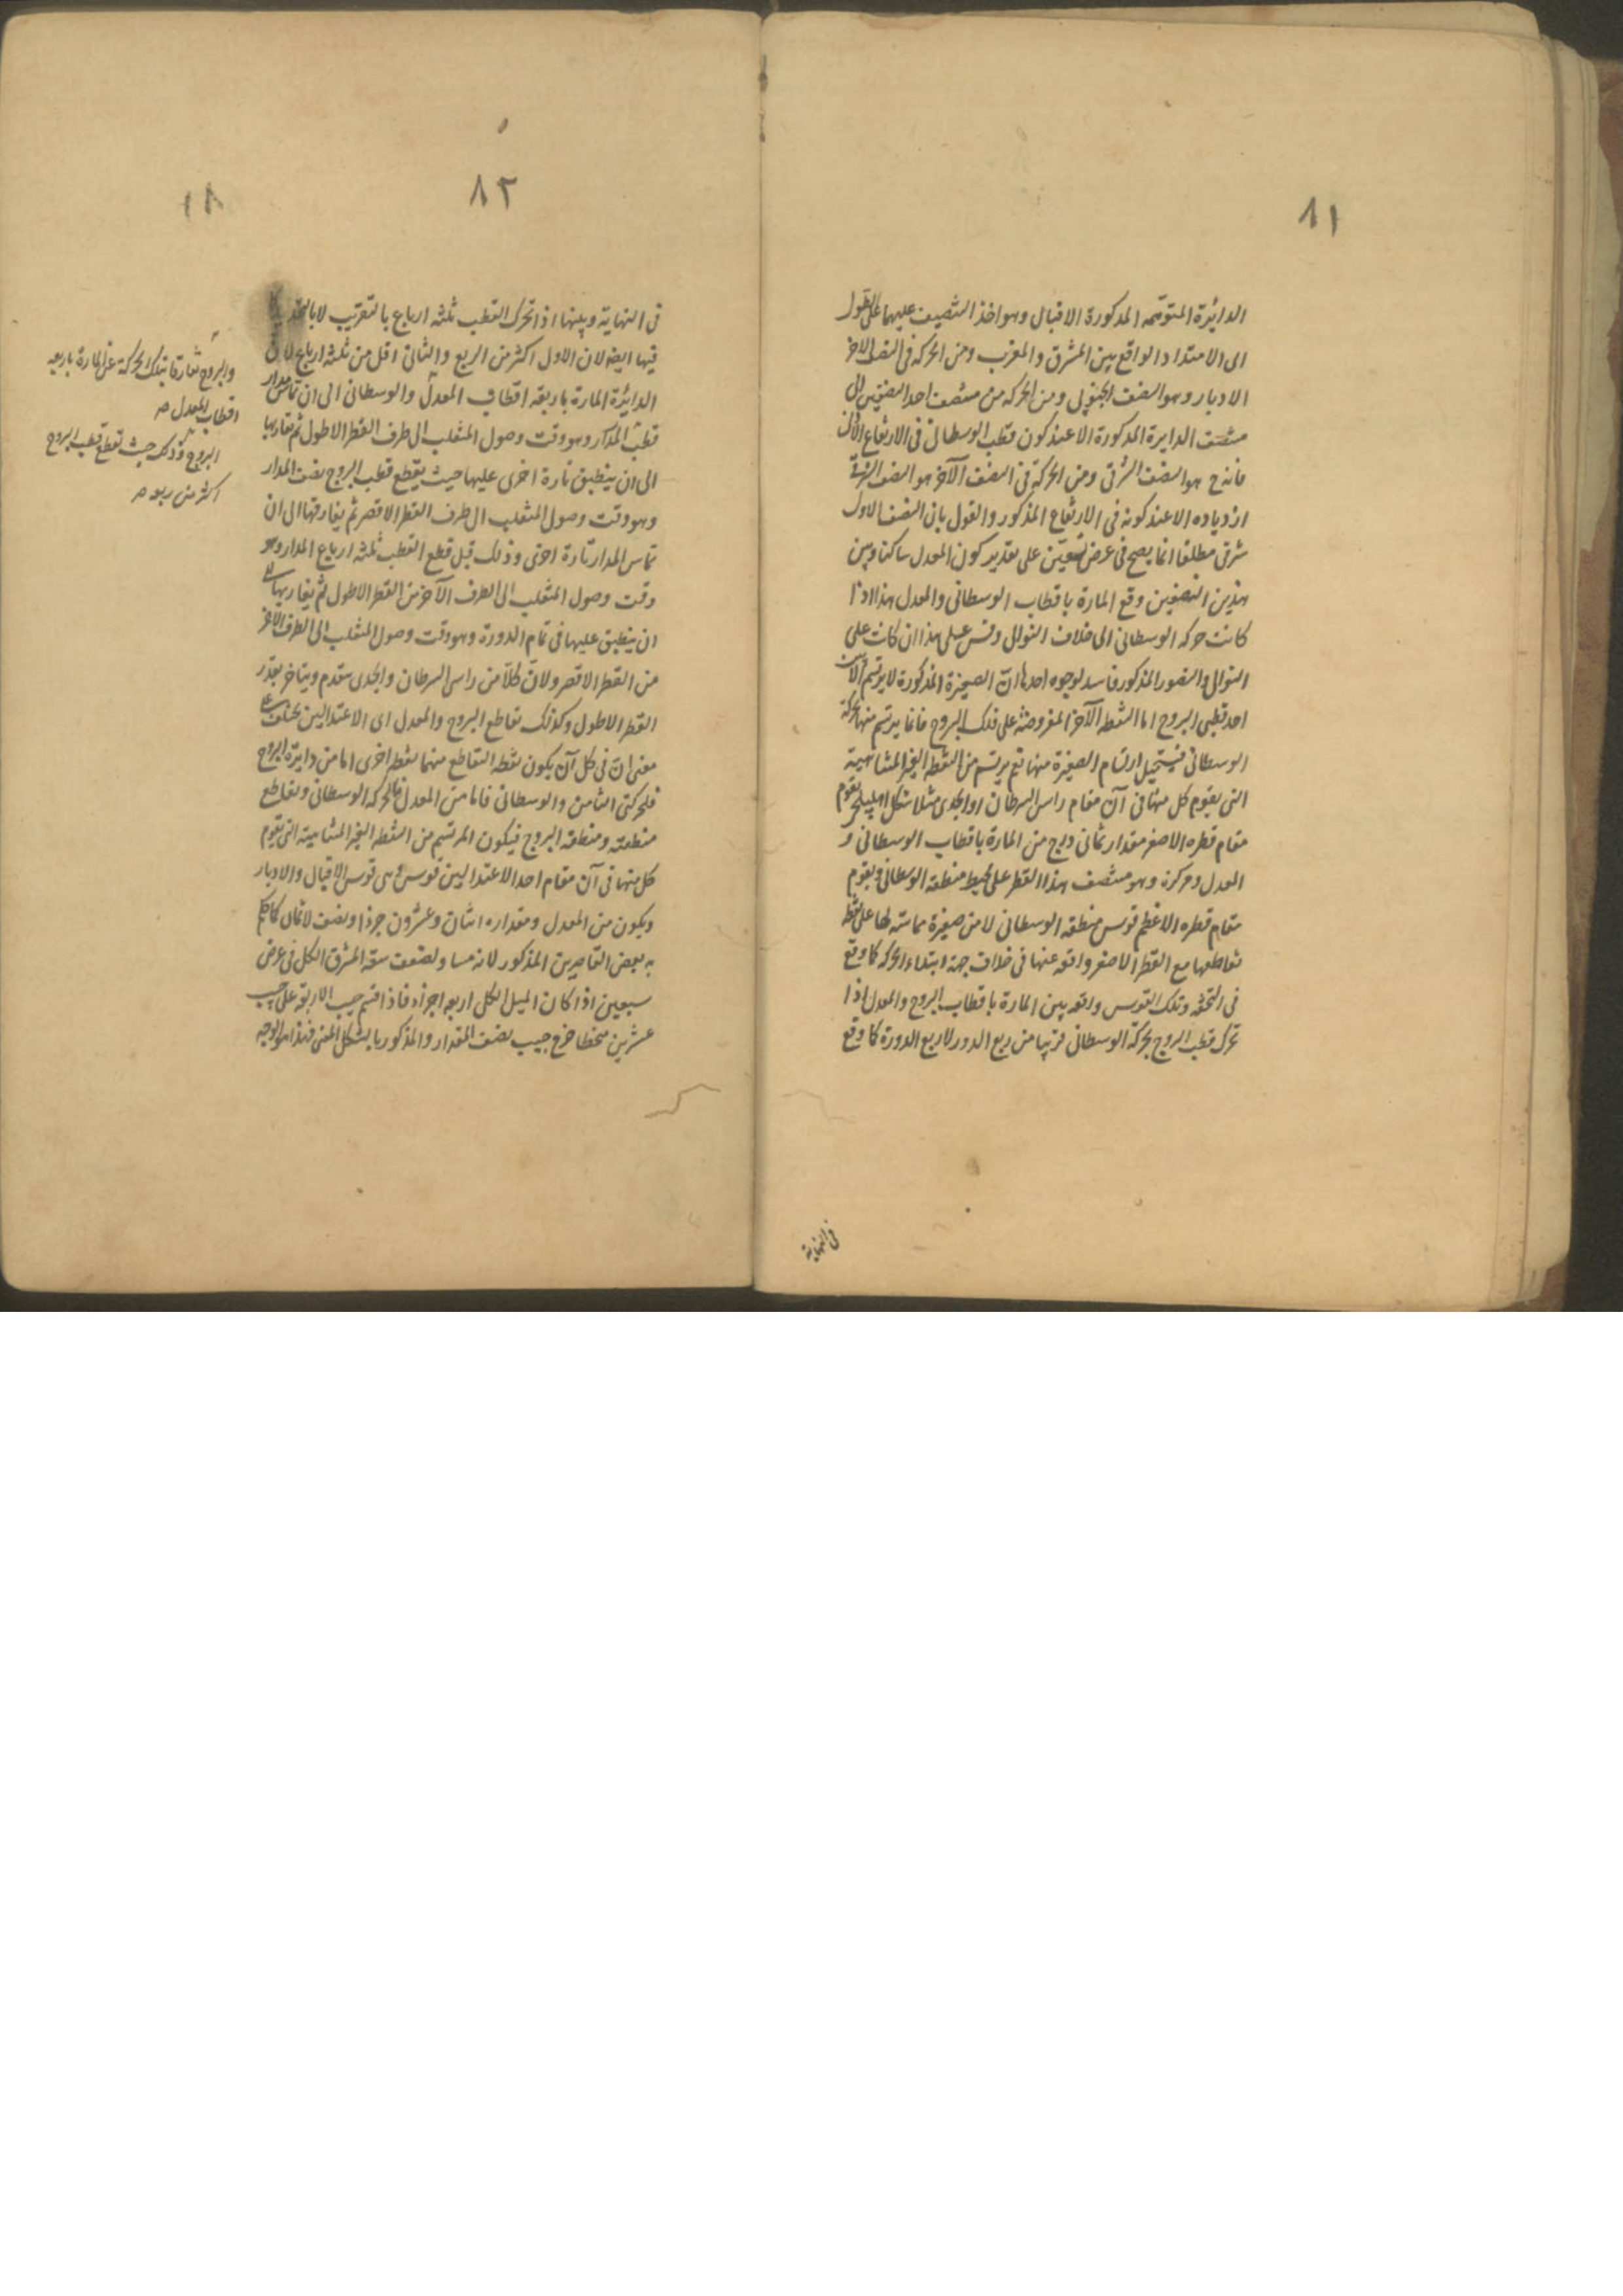 ٨١
الدائرة المتوهمه المذكورة الاقبال وهو اخذ التنصيف عليهما على الطول
الى الامتداد الواقع بين المشرق والمغرب ومن الحركه فى النصف الاخر
الادبار وهو النصف الجنوبى ومن الحركه من منتصف احد النصفين الى
منتصف الدايرة المذكورة الا عند كون قطب الوسطانى فى الارتفاع
فانه ح هو النصف الشرقى ومن الحركة فى النصف الآخر هو النصف
ازدياده الا عند كونه فى الارتفاع المذكور والقول بان النصف الاول
شرقى مطلقا انما يصح فى عرض تسعين على تقدير كون المعدل ساكنا وبين
هذين النصفين وقع المارة باقطاب الوسطانى والمعدل هذا اذا
كانت حركه الوسطانى الى خلاف التوالى وقس على هذا ان كانت على
التوالى والتصور المذكور فاسد لوجوه احدها ان الصغيرة المذكورة لا يرتسم الا من
احد قطبى البروج اما النقط الآخر المفروضة على فلك البروج فانما يرتسم منها بحركة
الوسطانى فيستحيل ارتسام الصغيرة منها نعم يرتسم من النقطه الغير المتناهية
التى يقوم كل منها فى آن مقام راس السرطان او الجدى مثلا شكل اهليلجى يقوم
مقام قطره الاصغر مقدار ثمانى درج من المارة باقطاب الوسطانى و
المعدل ومركزه وهو منتصف هذا القطر على محيط منطقة الوسطانى ويقوم
مقام قطره الاعظم قوس منطقه الوسطانى لا من صغيرة مماسة لها على نقطة
تقاطعها مع القطر الاصغر واقعه عنها فى خلاف جهة ابتداء الحركه كما وقع
فى التحفه وتلك القوس واقعه بين المارة باقطاب البروج والمعدل اذا
تحرك قطب البروج بحركة الوسطانى قريبا من ربع الدور لا ربع الدورة كما وقع
فى النهاية
٨٢
فى النهاية وبينها اذا تحرك القطب ثلثه ارباع بالتقريب لا بالتحقيق كما
فيها ايضا لان الاول اكثر من الربع والثانى اقل من ثلثه ارباع لان
الدائرة المارة باربعة اقطاب المعدل والوسطانى الى ان تماس مدار
قطب المدار وهو وقت وصول المنقلب الى طرف القطر الاطول ثم تقاربها
الى ان ينطبق تارة اخرى عليها حيث يقطع قطب البروج نصف المدار
وهو وقت وصول المنقلب الى طرف القطر الاقصر ثم يفارقها الى ان
تماس المدار تارة اخرى وذلك قبل قطع القطب ثلثه ارباع المدار وهو
وقت وصول المنقلب الى الطرف الآخر من القطر الاطول ثم يقاربها الى
ان ينطبق عليها فى تمام الدورة وهو وقت وصول المنقلب الى الطرف الاخر
من القطر الاقصر ولان كلا من راس السرطان والجدى يتقدم ويتاخر بقدر
القطر الاطول وكذلك تقاطع البروج والمعدل اى الاعتدالين يختلف
معنى ان فى كل آن يكون نقطه التقاطع منهما نقطه اخرى اما من دايرة البروج
فلحركتى الثامن والوسطانى فاما من المعدل فلحركه الوسطانى وتقاطع
منطقته ومنطقة البروج فيكون المرتسم من النقطه الغير المتناهية التى يقوم
كل منها فى آن مقام احد الاعتدالين قوس هى قوس الاقبال والادبار
ويكون من المعدل ومقداره اثنان وعشرون جزءا ونصف لا ثمان كما حكم
به بعض القاصرين المذكور لانه مساو لضعف سعة المشرق الكل فى عرض
سبعين اذا كان الميل الكل اربعه اجزاء فاذا قسم جيب الاربعة على جيب
عشرين منحطا خرج جيب نصف المقدار والمذكور بالشكل المغنى فهذا هو الوجه
والبروج تفارقا بتلك الحركة عن المارة باربعه
اقطاب المعدل ص
البروج وذلك حيث تقطع قطب البروج
اكثر من ربعه ص